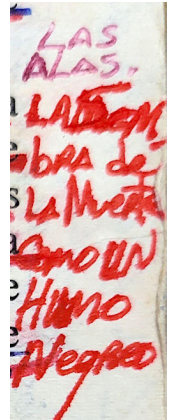 LAS
ALAS.
LA SOM
bRA de
LA Muerte
COMO UN
HIMNO
NEGRO